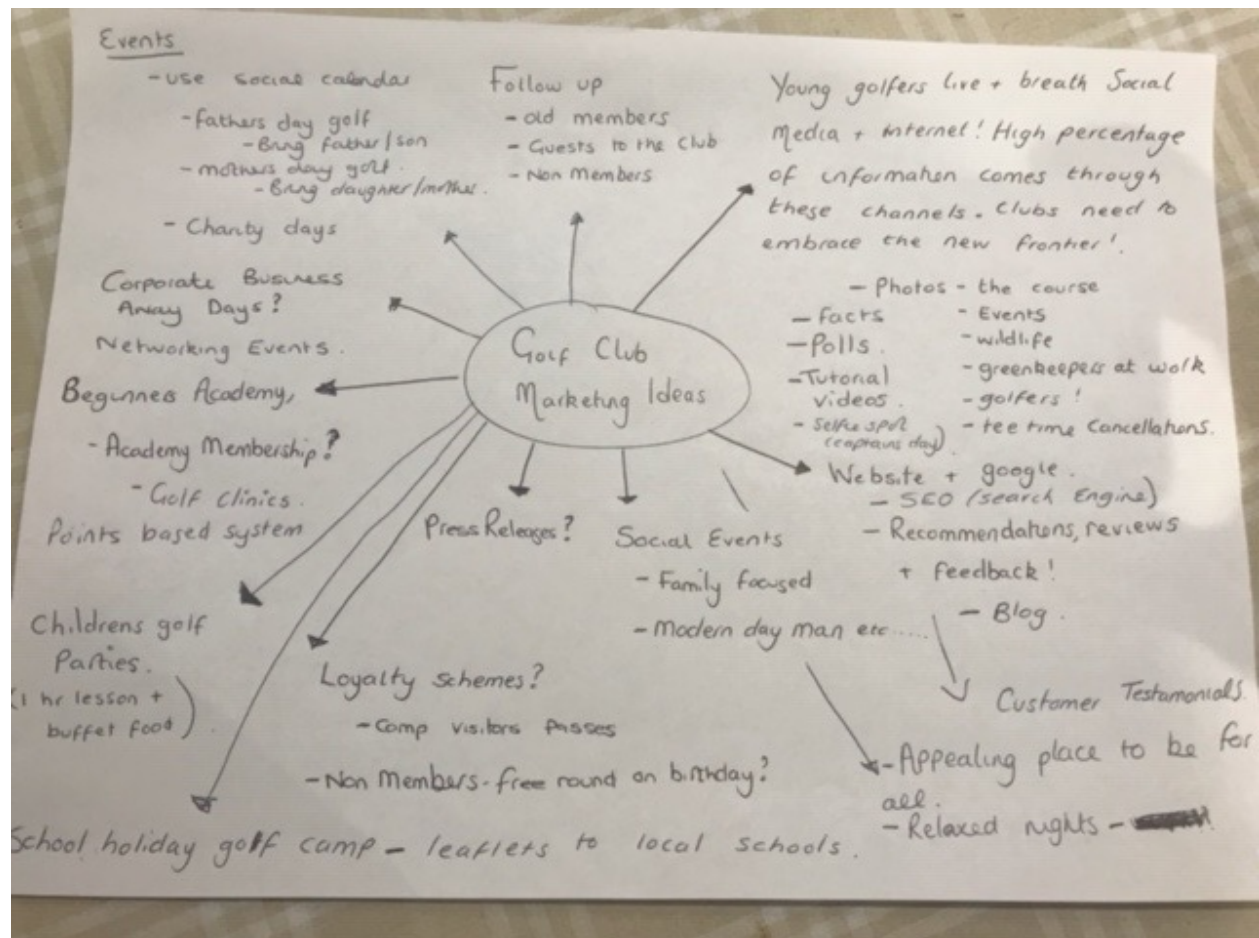 Events
- use social calendar
- Fathers day golf
- Bring father/son
- mothers day golf.
- Bring daughter/mother.
- Charity days
Follow up
- old members
- Guests to the Club
- Non Members
Young golfers live + breath Social
Media + internet! High percentage
of information comes through
these channels. Clubs need to
embrace the new frontier!
- Photos - the course
- Events
- wildlife
- greenkeepers at work
- golfers!
- tee time Cancellations.
- Facts
- Polls.
- Tutorial
videos.
- Selfie spot
(captains day)
Corporate Business
Away Days?
Networking Events.
Golf Club
Marketing Ideas
Beginners Academy,
- Academy Membership?
- Golf Clinics.
Points based system
Press Releases?
Social Events
- Family focused
- Modern day man etc.....
Website + google.
- SEO (Search Engine)
- Recommendations, reviews
+ feedback!
- Blog.
Customer Testamonials.
- Appealing place to be for
all.
- Relaxed nights -
Childrens golf
Parties.
(1 hr lesson +
buffet food).
Loyalty schemes?
- Comp visitors passes
- Non Members - free round on birthday?
School holiday golf camp - leaflets to local schools.